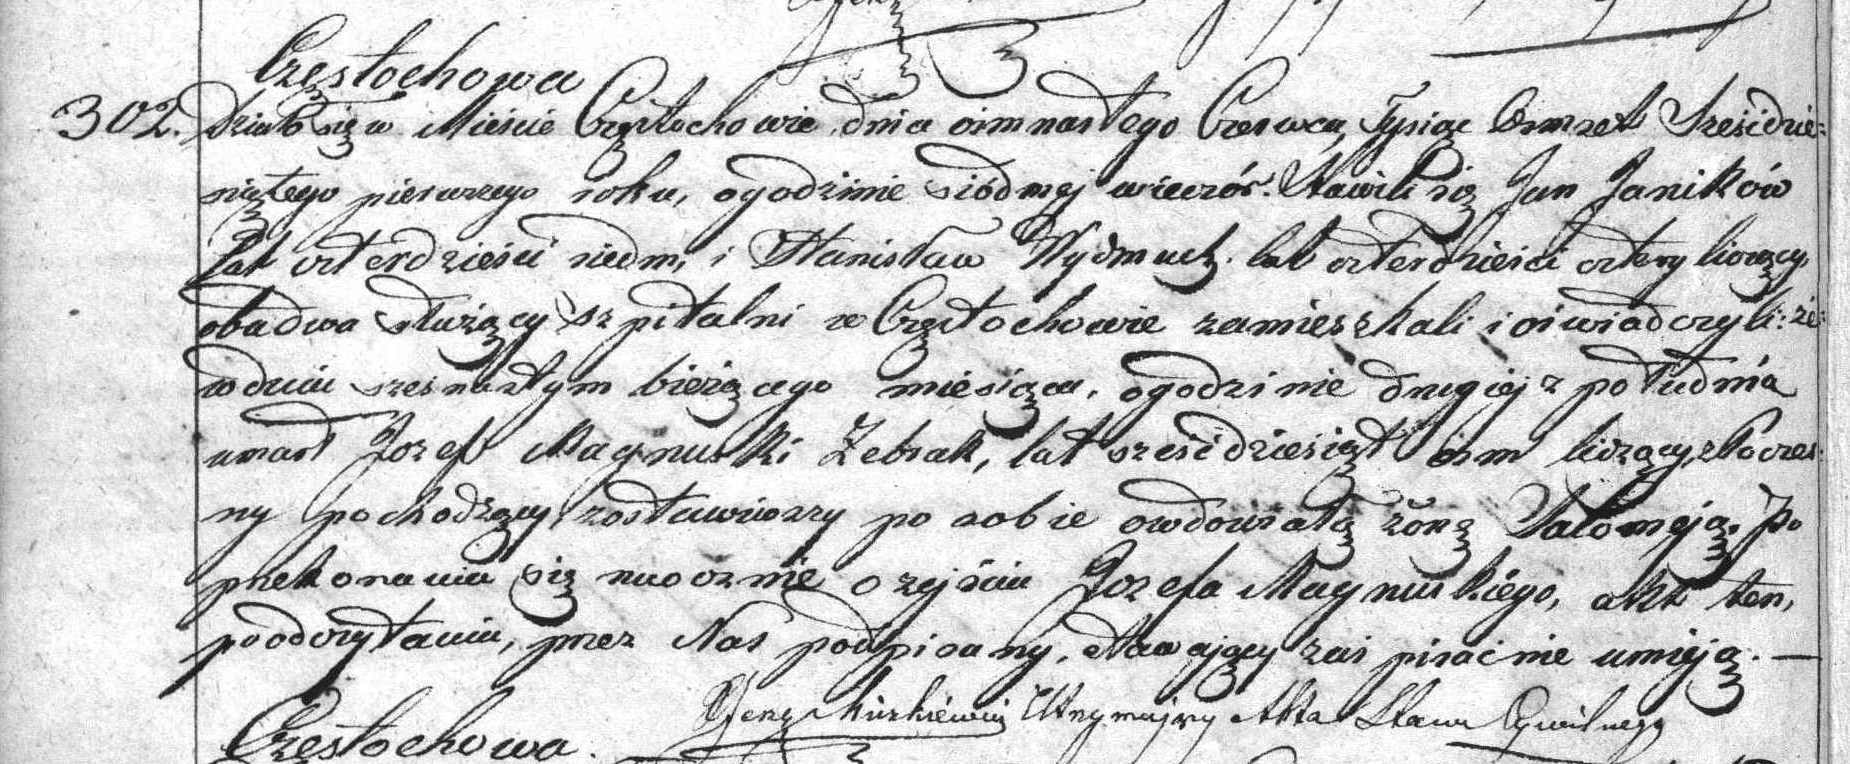 Częstochowa
302. Działo się w Mieście Częstochowie dnia osmnastego Czerwca, Tysiąc Osmset Sześćdzie-
siątego pierwszego roku, o godzinie siódmej wieczór. Stawili się Jan Janików
lat czterdzieści siedm, i Stanisław Wydmuch lat czterdzieści cztery liczący,
obadwa służący szpitalni w Częstochowie zamieszkali i oświadczyli: że
w dniu szesnastym bieżącego miesiąca, o godzinie drugiej z południa
umarł Jozef Magnuski Żebrak, lat sześćdziesiąt osm liczący, z Poczes-
ny pochodzący, zostawiwszy po sobie owdowiałą żonę Salomeją. Po
przekonaniu się naocznie o zejściu Jozefa Magnuskiego, akt ten,
po odczytaniu, przez Nas podpisany, stawający zaś pisać nie umieją. —
Utrzymujący Akta Stanu Cywilnego
Częstochowa.